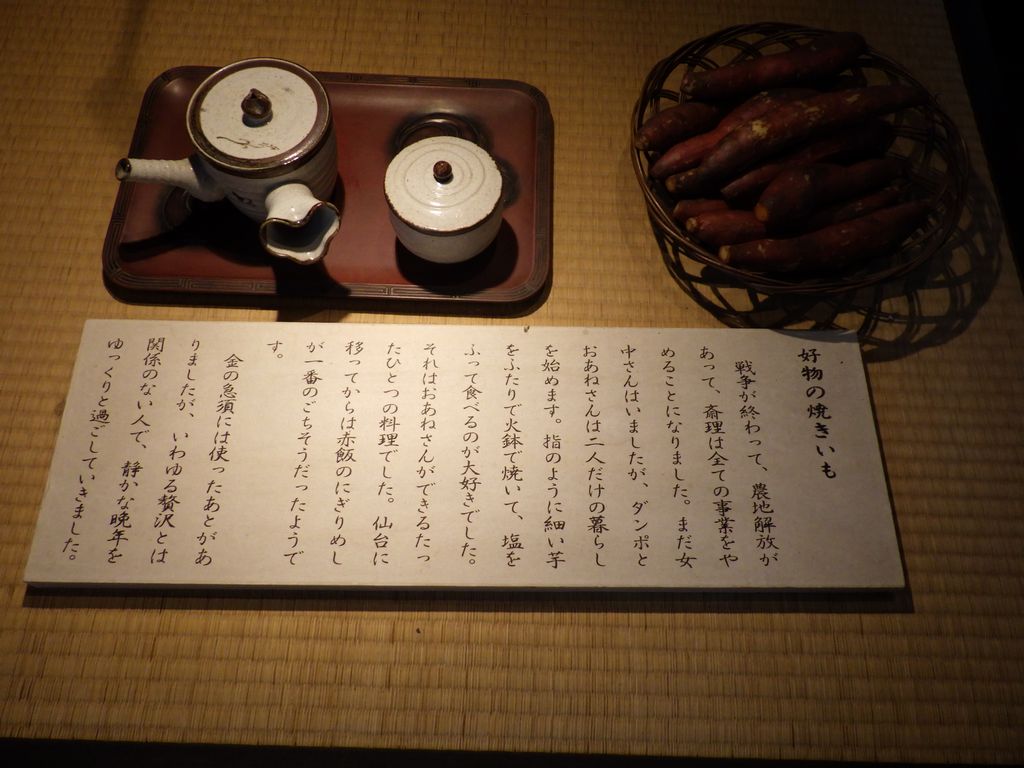 好物の焼きいも
戦争が終わって、農地解放が
あって、斎理は全ての事業をや
めることになりました。まだ女
中さんはいましたが、ダンポと
おあねさんは二人だけの暮らし
を始めます。指のように細い芋
をふたりで火鉢で焼いて、塩を
ふって食べるのが大好きでした。
それはおあねさんができるたっ
たひとつの料理でした。仙台に
移ってからは赤飯のにぎりめし
が一番のごちそうだったようで
す。
金の急須には使ったあとがあ
りましたが、いわゆる贅沢とは
関係のない人で、静かな晩年を
ゆっくりと過ごしていきました。